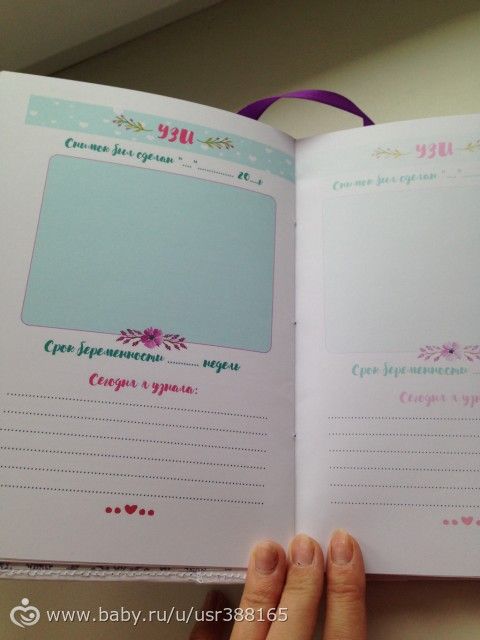 УЗИ
Снимок был сделан "...." .............. 20....г
Срок беременности ............ недель
Сегодня я узнала:
УЗИ
Снимок был сделан "...."
Срок беременности ...
Сегодня я узн
www.baby.ru/u/usr388165